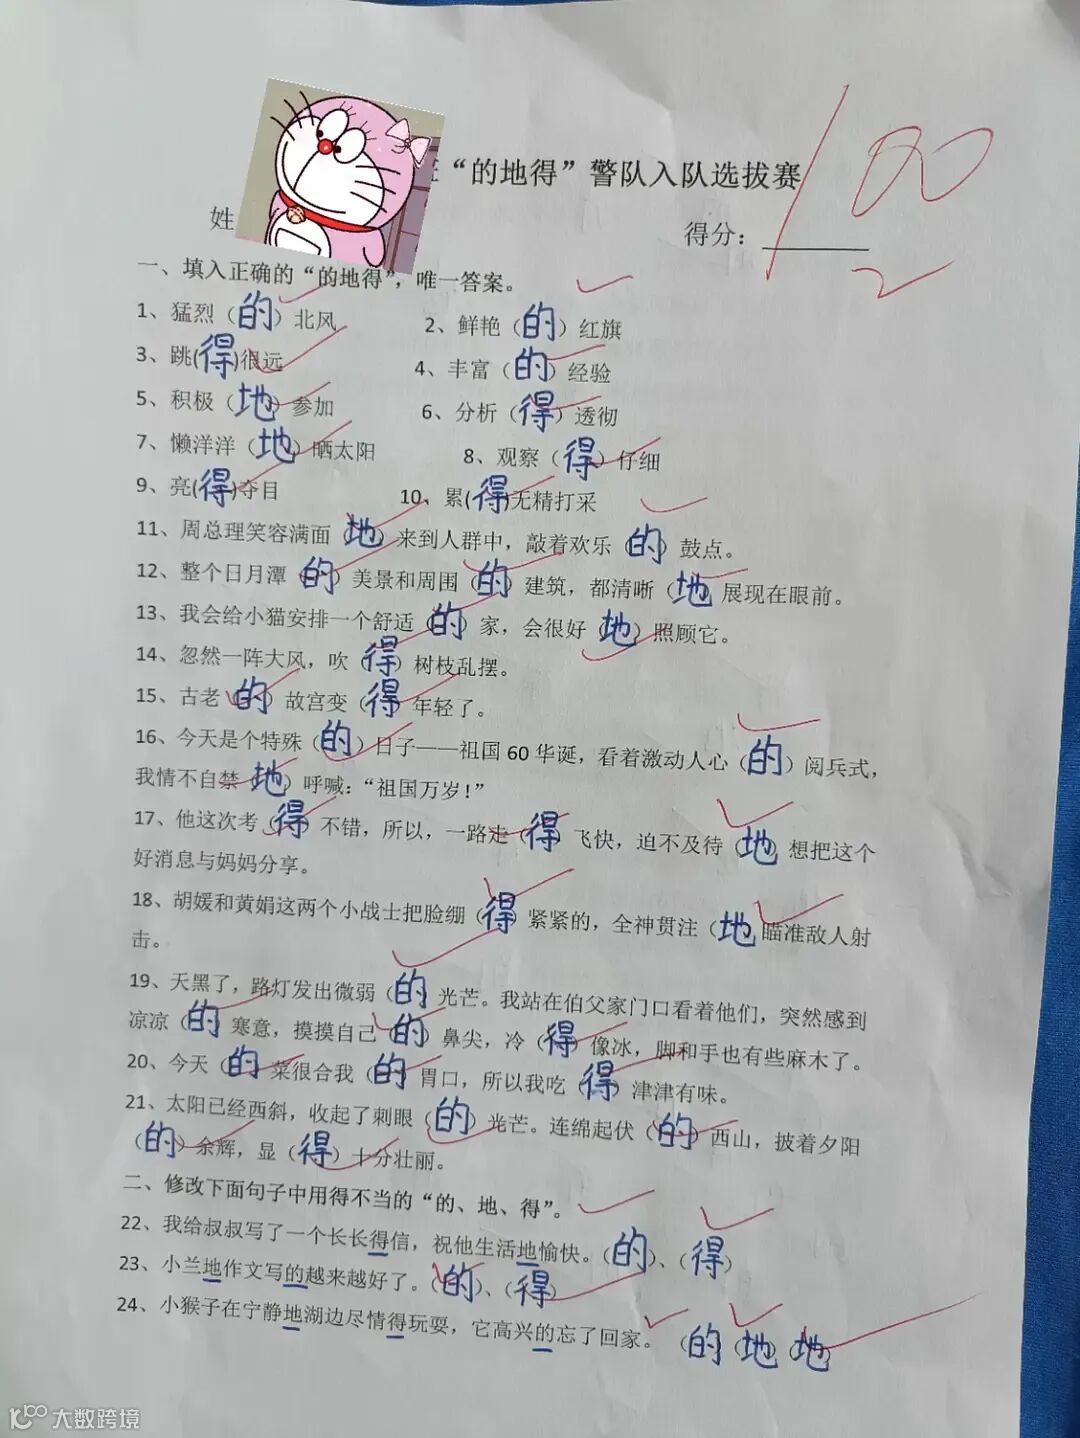 “的地得”警队入队选拔赛
100
姓 得分：
一、填入正确的“的地得”，唯一答案。
1、猛烈（的）北风 2、鲜艳（的）红旗
3、跳(得)很远 4、丰富（的）经验
5、积极（地）参加 6、分析（得）透彻
7、懒洋洋（地）晒太阳 8、观察（得）仔细
9、亮(得)夺目 10、累(得)无精打采
11、周总理笑容满面（地）来到人群中，敲着欢乐（的）鼓点。
12、整个日月潭（的）美景和周围（的）建筑，都清晰（地）展现在眼前。
13、我会给小猫安排一个舒适（的）家，会很好（地）照顾它。
14、忽然一阵大风，吹（得）树枝乱摆。
15、古老（的）故宫变（得）年轻了。
16、今天是个特殊（的）日子——祖国 60 华诞，看着激动人心（的）阅兵式，
我情不自禁（地）呼喊：“祖国万岁！”
17、他这次考（得）不错，所以，一路走（得）飞快，迫不及待（地）想把这个
好消息与妈妈分享。
18、胡媛和黄娟这两个小战士把脸绷（得）紧紧的，全神贯注（地）瞄准敌人射
击。
19、天黑了，路灯发出微弱（的）光芒。我站在伯父家门口看着他们，突然感到
凉凉（的）寒意，摸摸自己（的）鼻尖，冷（得）像冰，脚和手也有些麻木了。
20、今天（的）菜很合我（的）胃口，所以我吃（得）津津有味。
21、太阳已经西斜，收起了刺眼（的）光芒。连绵起伏（的）西山，披着夕阳
（的）余辉，显（得）十分壮丽。
二、修改下面句子中用得不当的“的、地、得”。
22、我给叔叔写了一个长长得信，祝他生活地愉快。（的）、（得）
23、小兰地作文写的越来越好了。（的）、（得）
24、小猴子在宁静地湖边尽情得玩耍，它高兴的忘了回家。（的）（地）（地）
大数跨境